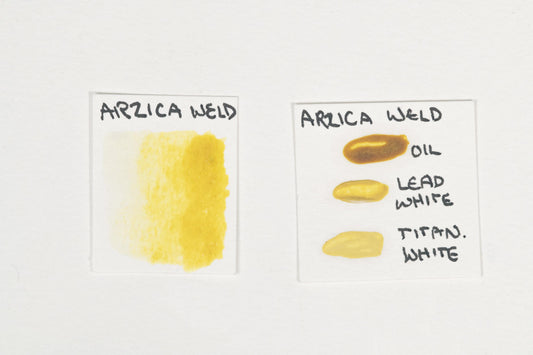 ARZICA WELD
ARZICA WELD
OIL
LEAD
WHITE
TITAN.
WHITE